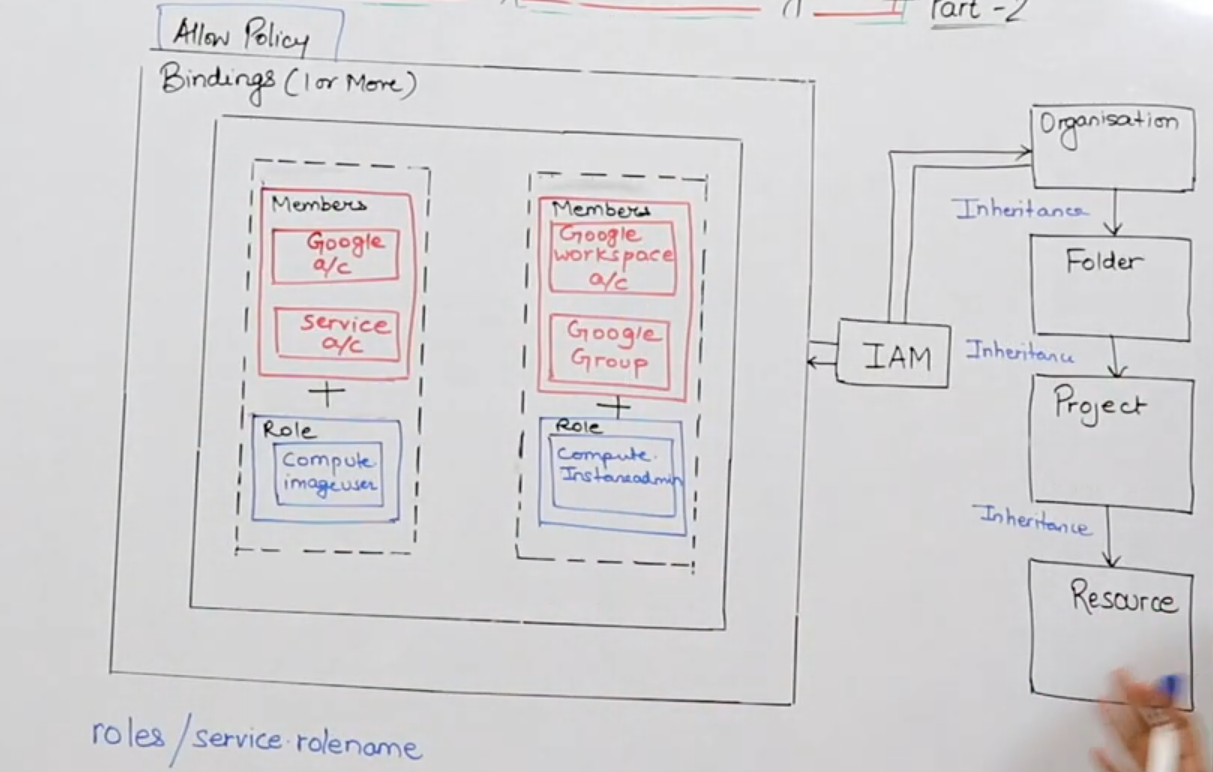 Part -2
Allow Policy
Bindings (1 or More)
Members
Google
a/c
Service
a/c
+
Role
Compute.
imageuser
Members
Google
workspace
a/c
Google
Group
+
Role
Compute.
Instanceadmin
IAM
Organisation
Inheritance
Folder
Inheritance
Project
Inheritance
Resource
roles/service.rolename